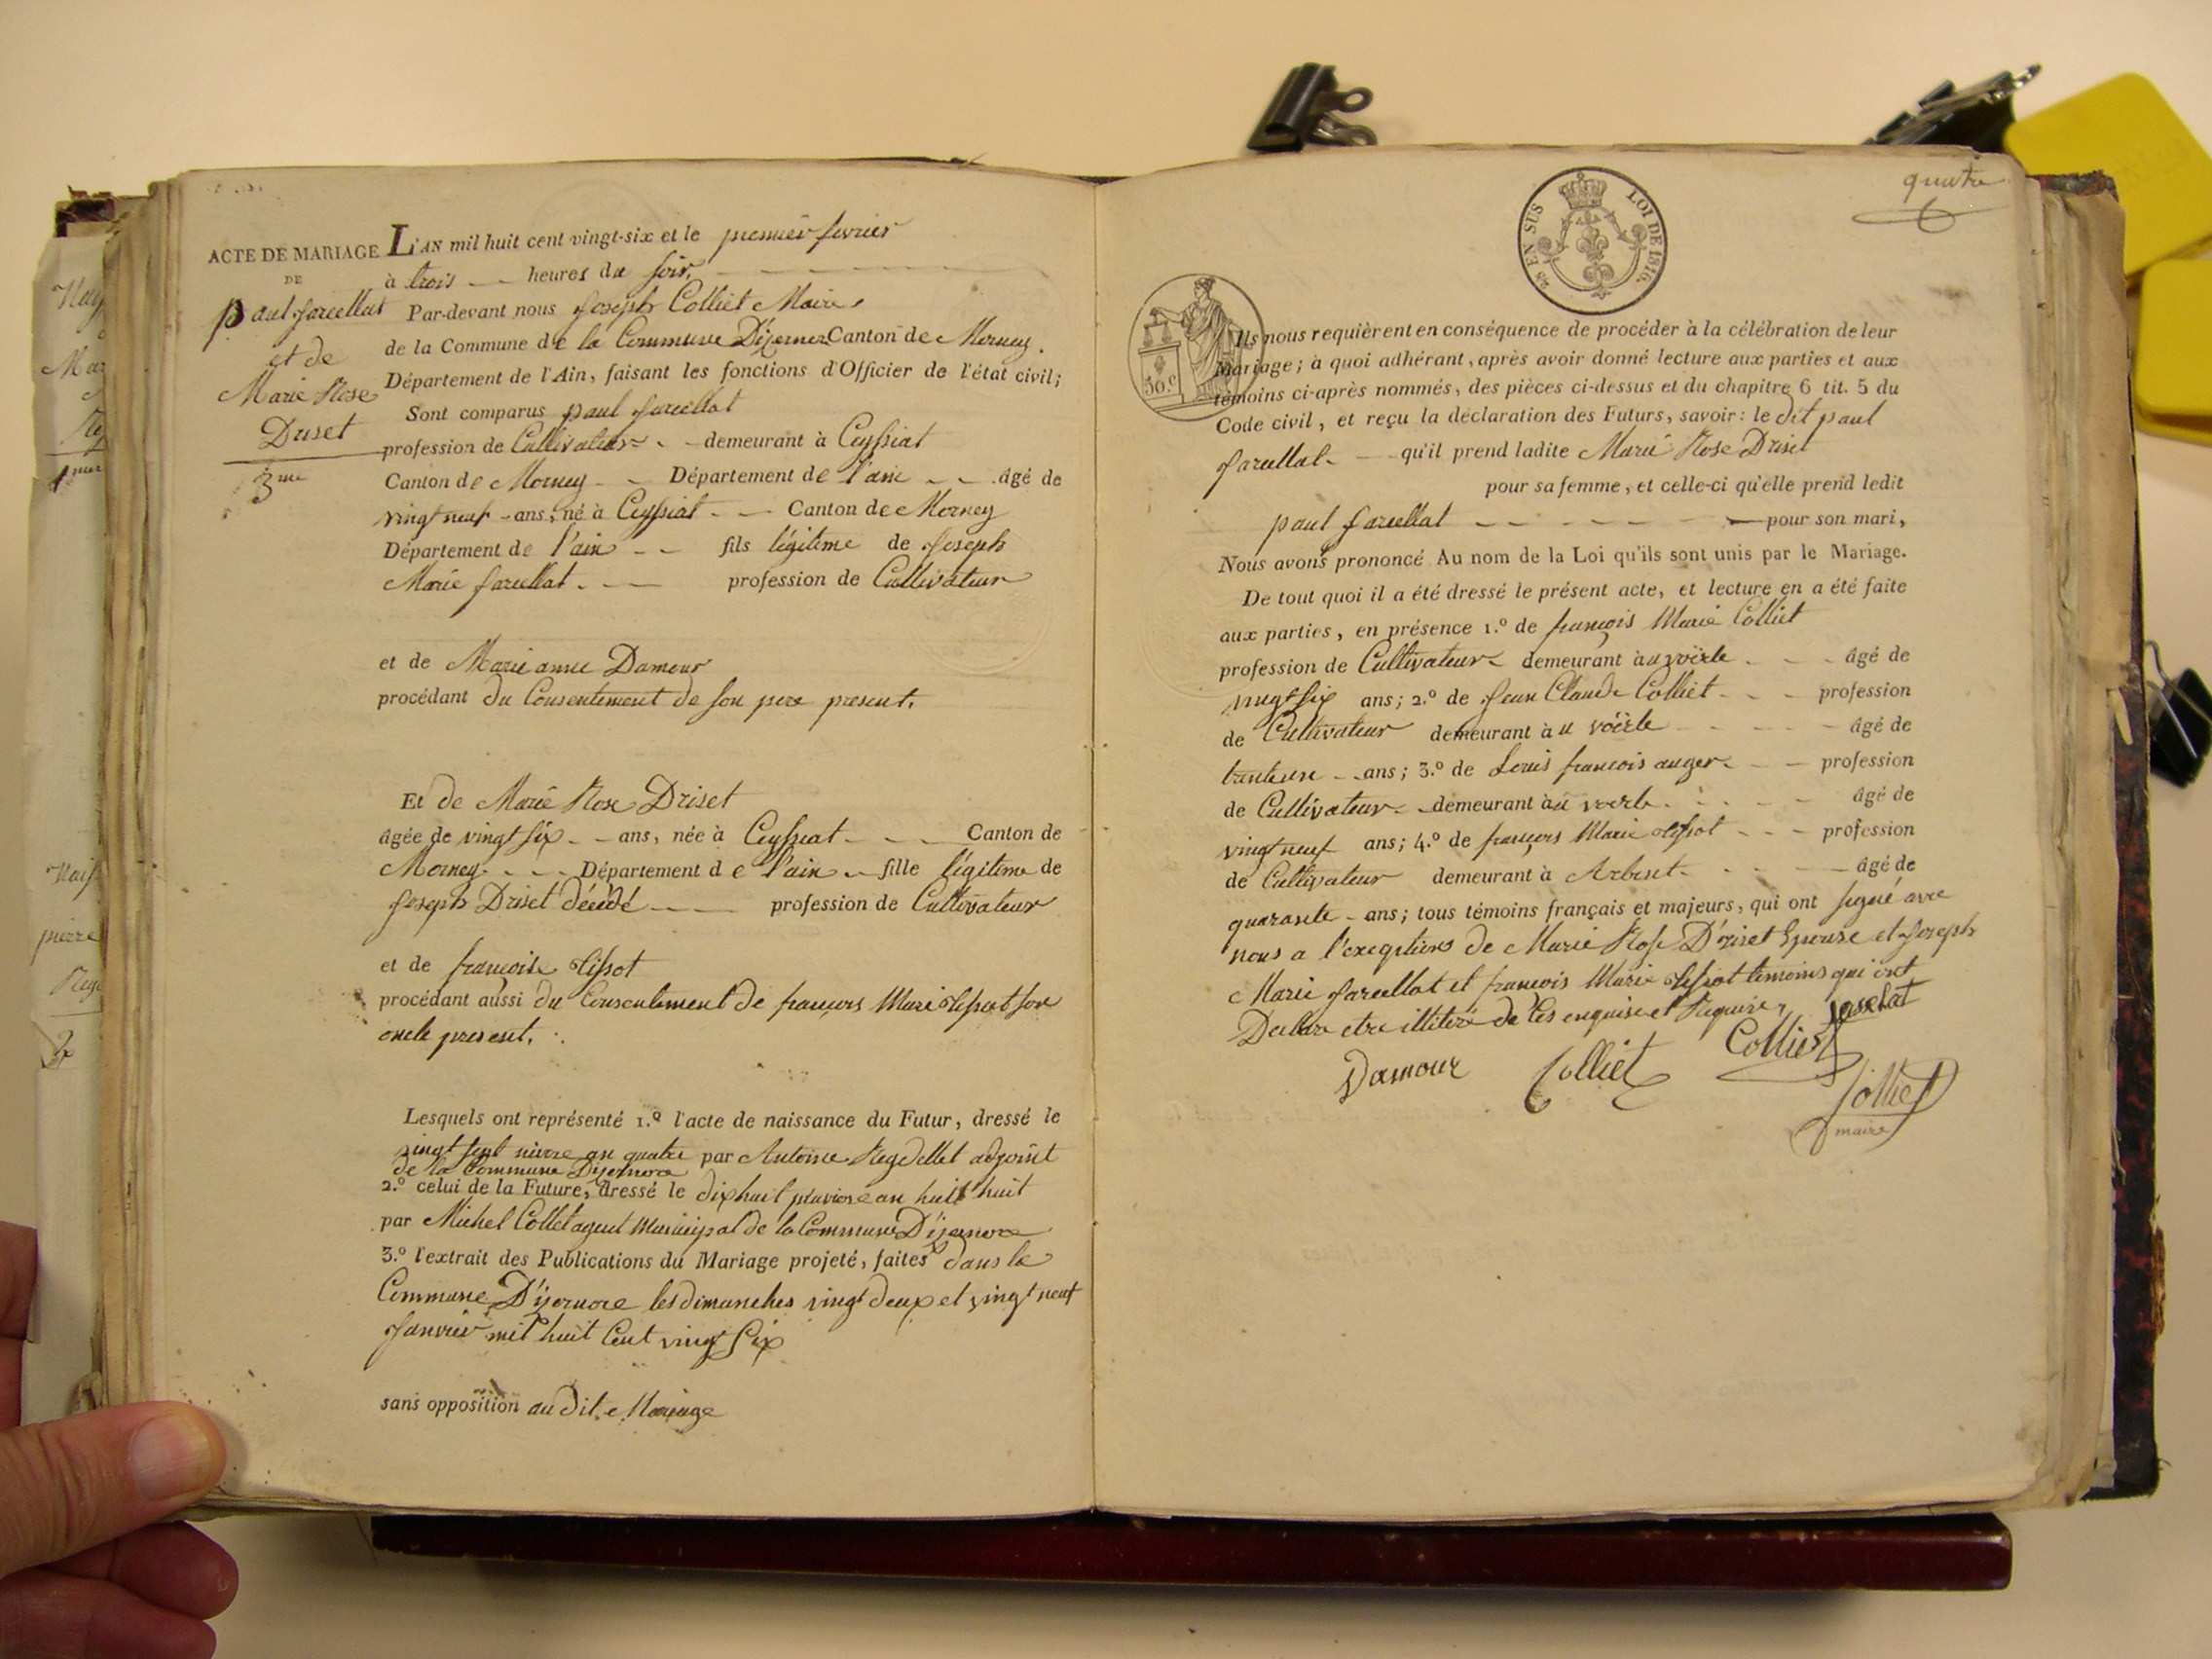 ACTE DE MARIAGE
DE
paul farcellat
et de
Marie Rose
Driset
3me
L'AN mil huit cent vingt-six et le premier fevrier
à trois heures du soir,
Par-devant nous Joseph Colliet Maire
de la Commune de la Commune D'izernor Canton de Mornay.
Département de l'Ain, faisant les fonctions d'Officier de l'état civil;
Sont comparus paul farcellat
profession de Cultivateur demeurant à Ceyssiat
Canton de Mornay Département de l'ain âgé de
vingt neuf ans, né à Ceyssiat Canton de Mornay
Département de l'ain fils légitime de Joseph
Marie farcellat profession de Cultivateur
et de Marie anne Damour
procédant du Consentement de son pere present.
Et de Marie Rose Driset
âgée de vingt six ans, née à Ceyssiat Canton de
Mornay Département de l'ain fille légitime de
Joseph Driset décédé profession de Cultivateur
et de françoise Tissot
procédant aussi du Consentement de francois Marie Tissot son
oncle present.
Lesquels ont représenté 1.º l'acte de naissance du Futur, dressé le
vingt sept nivose an quatre par Antoine Reydellet adjoint
de la Commune D'izernore
2.º celui de la Future, dressé le dixhuit pluviose an huit huit
par Michel Collet agent Municipal de la Commune D'izernore
3.º l'extrait des Publications du Mariage projeté, faites dans la
Commune D'izernore les dimanches vingt deux et vingt neuf
Janvier mil huit Cent vingt Six
sans opposition au dit Mariage
quatre
EN SUS LOI DE 1816.
30 c
Ils nous requièrent en conséquence de procéder à la célébration de leur
Mariage; à quoi adhérant, après avoir donné lecture aux parties et aux
témoins ci-après nommés, des pièces ci-dessus et du chapitre 6 tit. 5 du
Code civil, et reçu la déclaration des Futurs, savoir: le dit paul
farcellat qu'il prend ladite Marie Rose Driset
pour sa femme, et celle-ci qu'elle prend ledit
paul farcellat pour son mari,
Nous avons prononcé Au nom de la Loi qu'ils sont unis par le Mariage.
De tout quoi il a été dressé le présent acte, et lecture en a été faite
aux parties, en présence 1.º de françois Marie Colliet
profession de Cultivateur demeurant à âgé de
vingt six ans; 2.º de Jean Claude Colliet profession
de Cultivateur demeurant à u voërle âgé de
trenteun ans; 3.º de Louis francois auger profession
de Cultivateur demeurant à âgé de
vingt neuf ans; 4.º de françois Marie Tissot profession
de Cultivateur demeurant à Arbent âgé de
quarante ans; tous témoins français et majeurs, qui ont signé avec
nous a l'exception de Marie Rose Driset Epouse et Joseph
Marie farcellat et francois Marie Tissot temoins qui ont
Declaré etre illiteré de Ces enquise et Require,
Damour Colliet Colliet
Colliet
maire